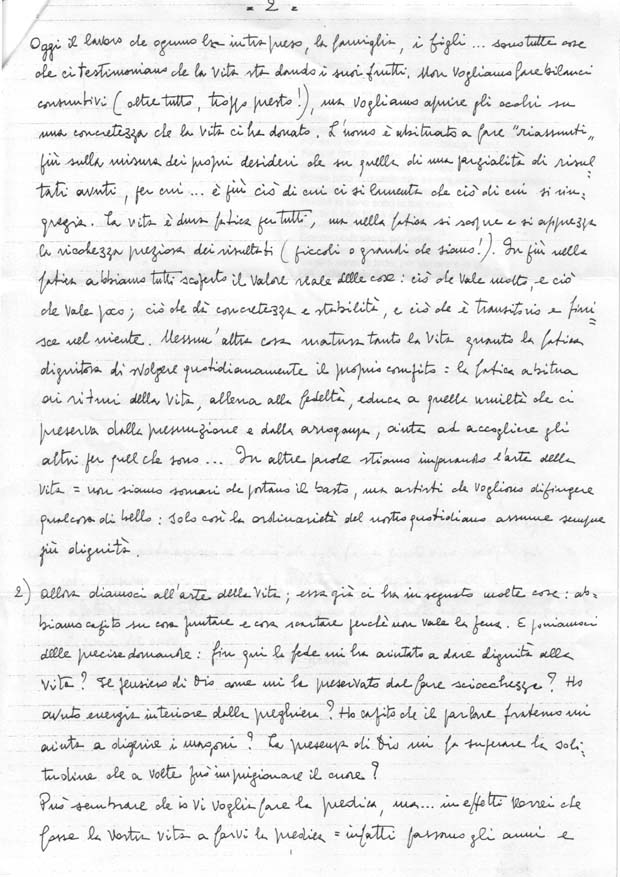 - 2 -
Oggi il lavoro che ognuno ha intrapreso, la famiglia, i figli ... sono tutte cose
che ci testimoniano che la vita sta dando i suoi frutti. Non vogliamo fare bilanci
consuntivi (oltre tutto, troppo presto!), ma vogliamo aprire gli occhi su
una concretezza che la vita ci ha donato. L'uomo è abituato a fare "riassunti"
più sulla misura dei propri desideri che su quella di una parzialità di risul=
tati avuti, per cui ... è più ciò di cui ci si lamenta che ciò di cui si rin=
grazia. La vita è dura fatica per tutti, ma nella fatica si scopre e si apprezza
la ricchezza preziosa dei risultati (piccoli o grandi che siano!). In più nella
fatica abbiamo tutti scoperto il valore reale delle cose: ciò che vale molto, e ciò
che vale poco; ciò che dà concretezza e stabilità, e ciò che è transitorio e fini=
sce nel niente. Nessun'altra cosa matura tanto la vita quanto la fatica
dignitosa di svolgere quotidianamente il proprio compito = la fatica abitua
ai ritmi della vita, allena alla fedeltà, educa a quella umiltà che ci
preserva dalla presunzione e dalla arroganza, aiuta ad accogliere gli
altri per quel che sono ... In altre parole stiamo imparando l'arte della
vita = non siamo somari che portano il basto, ma artisti che vogliono dipingere
qualcosa di bello: solo così la ordinarietà del nostro quotidiano assume sempre
più dignità.
2) Allora diamoci all'arte della vita; essa già ci ha insegnato molte cose: ab=
biamo capito su cosa puntare e cosa scartare perché non vale la pena. E poniamoci
delle precise domande: fin qui la fede mi ha aiutato a dare dignità alla
vita? Il pensiero di Dio come mi ha preservato dal fare sciocchezze? Ho
avuto energia interiore dalla preghiera? Ho capito che il parlare fraterno mi
aiuta a digerire i magoni? La presenza di Dio mi fa superare la soli=
tudine che a volte può imprigionare il cuore?
Può sembrare che io vi voglia fare la predica, ma... in effetti vorrei che
fosse la vostra vita a farvi la predica = infatti passano gli anni e